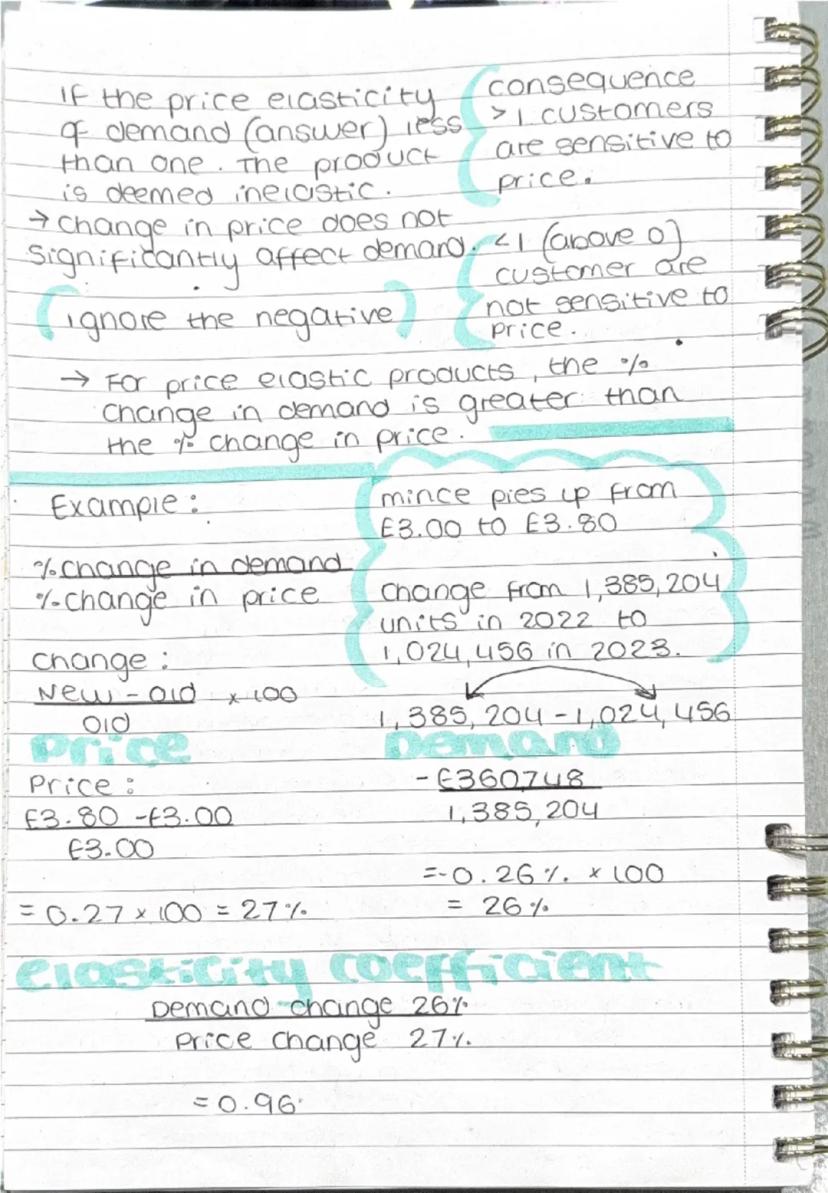 If the price elasticity
of demand (answer) less
than one. The product
is deemed inelastic.
→ change in price does not
significantly affect demand.
(ignore the negative)
consequence
> 1 customers
are sensitive to
price.
<1 (above 0)
customer are
not sensitive to
price.
→ For price elastic products, the %
change in demand is greater than
the % change in price.
Example:
% change in demand
% change in price
change:
New - old x 100
old
mince pies up from
£3.00 to £3.80
change from 1,385,204
units in 2022 to
1,024,456 in 2023.
1,385,204 - 1,024,456
Price
Price:
£3.80 - £3.00
£3.00
= 0.27 x 100 = 27%
Demand
- £360748
1,385,204
= -0.26% x 100
= 26%
elasticity coefficient
Demand change 26%
Price change 27%
= 0.96